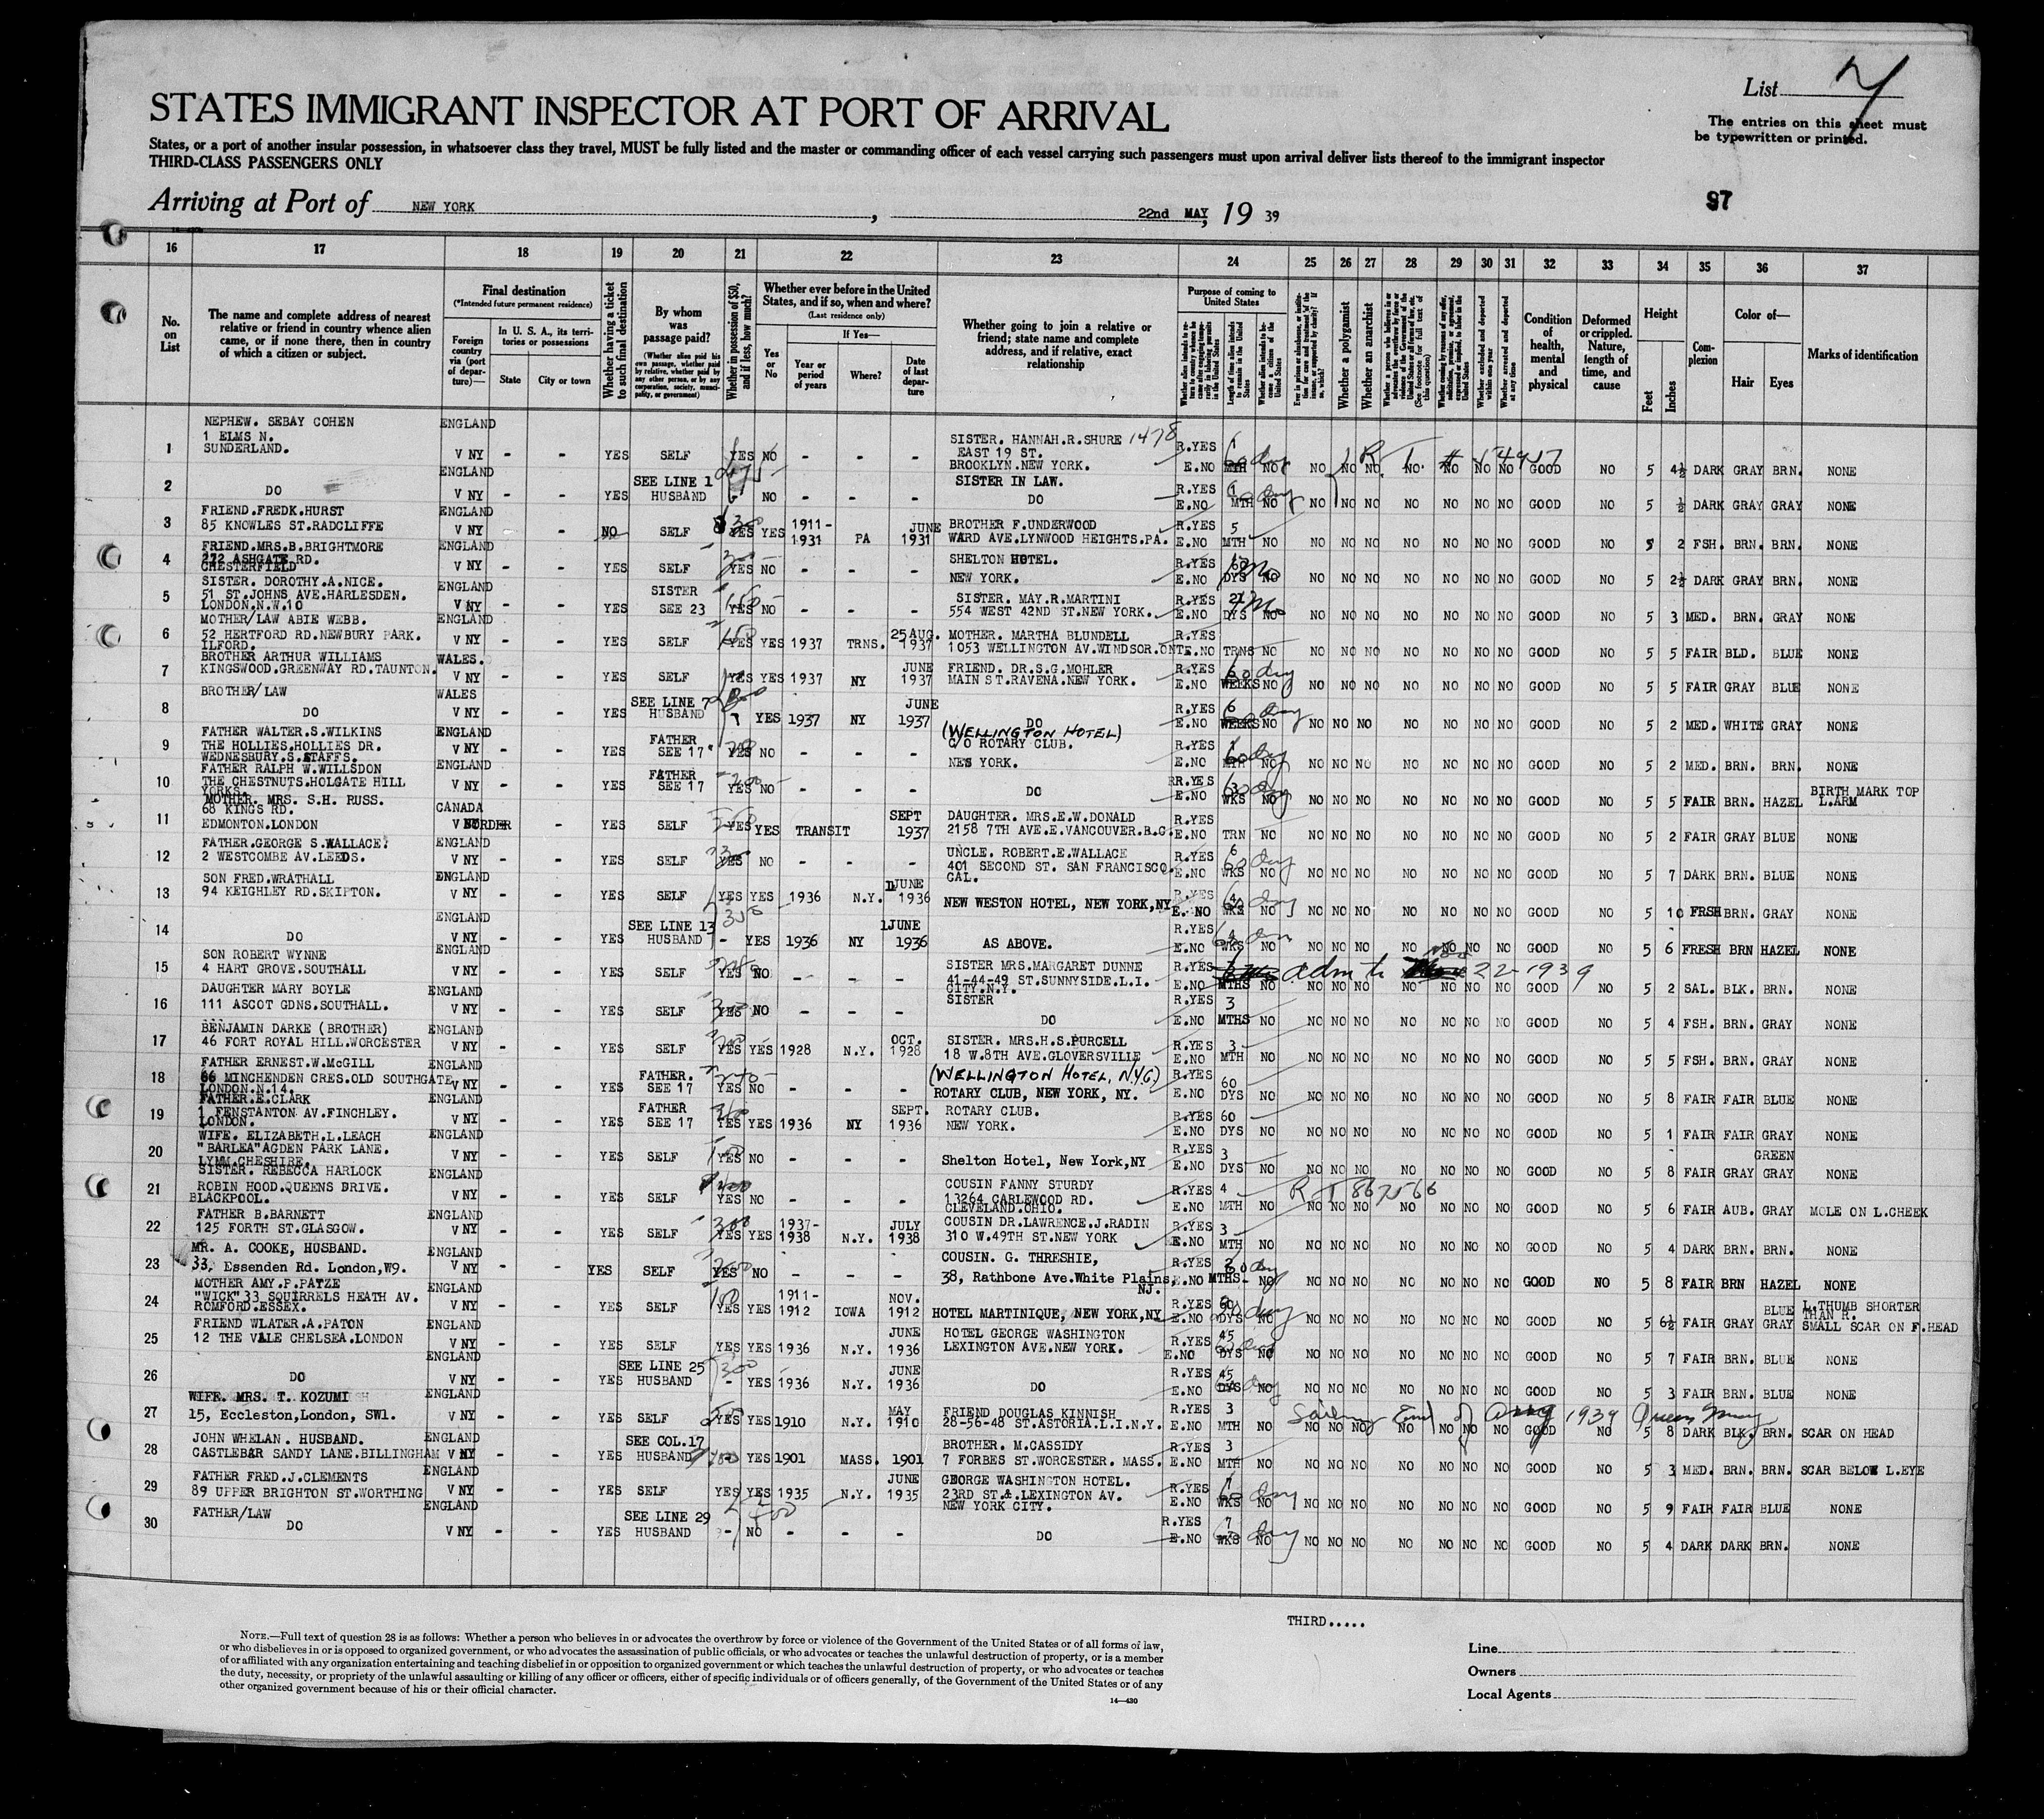 List 7
STATES IMMIGRANT INSPECTOR AT PORT OF ARRIVAL
The entries on this sheet must
be typewritten or printed.
States, or a port of another insular possession, in whatsoever class they travel, MUST be fully listed and the master or commanding officer of each vessel carrying such passengers must upon arrival deliver lists thereof to the immigrant inspector
THIRD-CLASS PASSENGERS ONLY
97
Arriving at Port of NEW YORK, 22nd MAY, 19 39
16 17 18 19 20 21 22 23 24 25 26 27 28 29 30 31 32 33 34 35 36 37
No. on List
The name and complete address of nearest relative or friend in country whence alien came, or if none there, then in country of which a citizen or subject.
Final destination
(*Intended future permanent residence)
Foreign country via (port of departure)—
In U. S. A., its territories or possessions
State
City or town
Whether having a ticket to such final destination
By whom was passage paid?
(Whether alien paid his own passage, whether paid by relative, whether paid by any other person, or by any corporation, society, municipality, or government)
Whether in possession of $50, and if less, how much?
Whether ever before in the United States, and if so, when and where?
(Last residence only)
Yes or No
If Yes—
Year or period of years
Where?
Date of last departure
Whether going to join a relative or friend; state name and complete address, and if relative, exact relationship
Purpose of coming to United States
Length of time alien intends to remain in the United States
Whether a polygamist
Whether an anarchist
Whether excluded and deported within one year
Whether arrested and deported at any time
Condition of health, mental and physical
Deformed or crippled. Nature, length of time, and cause
Height
Feet
Inches
Complexion
Color of—
Hair
Eyes
Marks of identification
1 NEPHEW. SEBAY COHEN 1 ELMS N. SUNDERLAND. ENGLAND V NY - - YES SELF YES NO - - - SISTER. HANNAH.R.SHURE 1478 EAST 19 ST. BROOKLYN.NEW YORK. R.YES E.NO 1 MTH NO NO NO NO NO NO NO NO GOOD NO 5 4½ DARK GRAY BRN. NONE
2 DO ENGLAND V NY - - YES SEE LINE 1 HUSBAND - NO - - - SISTER IN LAW. DO R.YES E.NO 1 MTH NO NO NO NO NO NO NO NO GOOD NO 5 ½ DARK GRAY GRAY NONE
3 FRIEND.FREDK.HURST 85 KNOWLES ST.RADCLIFFE ENGLAND V NY - - NO SELF YES YES 1911-1931 PA JUNE 1931 BROTHER F.UNDERWOOD WARD AVE.LYNWOOD HEIGHTS.PA. R.YES E.NO 5 MTH NO NO NO NO NO NO NO NO GOOD NO 5 2 FSH. BRN. BRN. NONE
4 FRIEND.MRS.B.BRIGHTMORE 272 ASHGATE RD. CHESTERFIELD ENGLAND V NY - - YES SELF YES NO - - - SHELTON HOTEL. NEW YORK. R.YES E.NO DYS NO NO NO NO NO NO NO NO GOOD NO 5 2½ DARK GRAY BRN. NONE
5 SISTER. DOROTHY.A.NICE. 51 ST.JOHNS AVE.HARLESDEN. LONDON.N.W.10 ENGLAND V NY - - YES SISTER SEE 23 YES NO - - - SISTER. MAY.R.MARTINI 554 WEST 42ND ST.NEW YORK. R.YES E.NO 21 DYS NO NO NO NO NO NO NO NO GOOD NO 5 3 MED. BRN. GRAY NONE
6 MOTHER/LAW ABIE WEBB. 52 HERTFORD RD.NEWBURY PARK. ILFORD. ENGLAND V NY - - YES SELF YES YES 1937 TRNS. 25 AUG. 1937 MOTHER. MARTHA BLUNDELL 1053 WELLINGTON AV.WINDSOR.ONT R.YES E.NO TRNS NO NO NO NO NO NO NO NO GOOD NO 5 5 FAIR BLD. BLUE NONE
7 BROTHER ARTHUR WILLIAMS KINGSWOOD.GREENWAY RD.TAUNTON. WALES. V NY - - YES SELF YES YES 1937 NY JUNE 1937 FRIEND. DR.S.G.MOHLER MAIN ST.RAVENA.NEW YORK. R.YES E.NO 6 WEEKS NO NO NO NO NO NO NO NO GOOD NO 5 5 FAIR GRAY BLUE NONE
8 BROTHER/LAW DO WALES V NY - - YES SEE LINE 7 HUSBAND YES 1937 NY JUNE 1937 DO R.YES E.NO 6 WEEKS NO NO NO NO NO NO NO NO GOOD NO 5 2 MED. WHITE GRAY NONE
9 FATHER WALTER.S.WILKINS THE HOLLIES.HOLLIES DR. WEDNESBURY.S.STAFFS. ENGLAND V NY - - YES FATHER SEE 17 YES NO - - - (WELLINGTON HOTEL) C/O ROTARY CLUB. NEW YORK. R.YES E.NO MTH NO NO NO NO NO NO NO NO GOOD NO 5 2 MED. BRN. BRN. NONE
10 FATHER RALPH W.WILLSDON THE CHESTNUTS.HOLGATE HILL YORKS. ENGLAND V NY - - YES FATHER SEE 17 YES NO - - - DO R.YES E.NO 3 WKS NO NO NO NO NO NO NO NO GOOD NO 5 5 FAIR BRN. HAZEL BIRTH MARK TOP L.ARM
11 MOTHER. MRS. S.H. RUSS. 68 KINGS RD. EDMONTON.LONDON CANADA V BORDER - - YES SELF YES YES TRANSIT SEPT 1937 DAUGHTER. MRS.E.W.DONALD 2158 7TH AVE.E.VANCOUVER.B.C. R.YES E.NO TRN NO NO NO NO NO NO NO NO GOOD NO 5 2 FAIR GRAY BLUE NONE
12 FATHER.GEORGE S.WALLACE. 2 WESTCOMBE AV.LEEDS. ENGLAND V NY - - YES SELF YES NO - - - UNCLE. ROBERT.E.WALLACE 401 SECOND ST. SAN FRANCISCO. CAL. R.YES E.NO 6 WKS NO NO NO NO NO NO NO NO GOOD NO 5 7 DARK BRN. BLUE NONE
13 SON FRED.WRATHALL 94 KEIGHLEY RD.SKIPTON. ENGLAND V NY - - YES SELF YES YES 1936 N.Y. JUNE 1936 NEW WESTON HOTEL, NEW YORK,NY R.YES E.NO 4 WKS NO NO NO NO NO NO NO NO GOOD NO 5 10 FRSH BRN. GRAY NONE
14 DO ENGLAND V NY - - YES SEE LINE 13 HUSBAND - YES 1936 NY 1JUNE 1936 AS ABOVE. R.YES E.NO 4 WKS NO NO NO NO NO NO NO NO GOOD NO 5 6 FRESH BRN HAZEL NONE
15 SON ROBERT WYNNE 4 HART GROVE.SOUTHALL ENGLAND V NY - - YES SELF YES NO - - - SISTER MRS.MARGARET DUNNE 41-44-49 ST.SUNNYSIDE.L.I. CITY.N.Y. R.YES E.NO MTHS NO adm to 22-1939 NO NO NO NO NO NO NO GOOD NO 5 2 SAL. BLK. BRN. NONE
16 DAUGHTER MARY BOYLE 111 ASCOT GDNS.SOUTHALL. ENGLAND V NY - - YES SELF YES NO - - - SISTER DO R.YES E.NO 3 MTHS NO NO NO NO NO NO NO NO GOOD NO 5 4 FSH. BRN. GRAY NONE
17 BENJAMIN DARKE (BROTHER) 46 FORT ROYAL HILL.WORCESTER ENGLAND V NY - - YES SELF YES YES 1928 N.Y. OCT. 1928 SISTER. MRS.H.S.PURCELL 18 W.8TH AVE.GLOVERSVILLE R.YES E.NO 3 MTH NO NO NO NO NO NO NO NO GOOD NO 5 5 FSH. BRN. GRAY NONE
18 FATHER ERNEST.W.McGILL 66 MINCHENDEN CRES.OLD SOUTHGATE LONDON.N.14. ENGLAND V NY - - YES FATHER. SEE 17 YES NO - - - (WELLINGTON HOTEL, N.Y.C.) ROTARY CLUB, NEW YORK, NY. R.YES E.NO 60 DYS NO NO NO NO NO NO NO NO GOOD NO 5 8 FAIR FAIR BLUE NONE
19 FATHER.E.CLARK 1 FENSTANTON AV.FINCHLEY. LONDON. ENGLAND V NY - - YES FATHER SEE 17 YES YES 1936 NY SEPT. 1936 ROTARY CLUB. NEW YORK. R.YES E.NO 60 DYS NO NO NO NO NO NO NO NO GOOD NO 5 1 FAIR FAIR GRAY NONE
20 WIFE. ELIZABETH.L.LEACH "BARLEA"AGDEN PARK LANE. LYMM.CHESHIRE. ENGLAND V NY - - YES SELF YES NO - - - Shelton Hotel, New York,NY R.YES E.NO 3 DYS NO NO NO NO NO NO NO NO GOOD NO 5 8 FAIR GRAY GREEN GRAY NONE
21 SISTER. REBECCA HARLOCK ROBIN HOOD.QUEENS DRIVE. BLACKPOOL. ENGLAND V NY - - YES SELF YES NO - - - COUSIN FANNY STURDY 13264 CARLEWOOD RD. CLEVELAND.OHIO. R.YES E.NO 4 MTH NO R T 867566 NO NO NO NO NO NO NO GOOD NO 5 6 FAIR AUB. GRAY MOLE ON L.CHEEK
22 FATHER B.BARNETT 125 FORTH ST.GLASGOW. ENGLAND V NY - - YES SELF 300 YES YES 1937-1938 N.Y. JULY 1938 COUSIN DR.LAWRENCE.J.RADIN 310 W.49TH ST.NEW YORK R.YES E.NO 3 MTH NO NO NO NO NO NO NO NO GOOD NO 5 4 DARK BRN. BRN. NONE
23 MR. A. COOKE, HUSBAND. 33, Essenden Rd. London,W9. ENGLAND V NY - - YES SELF YES NO - - - COUSIN. G. THRESHIE, 38, Rathbone Ave.White Plains, NJ. R.YES E.NO 2 MTHS NO NO NO NO NO NO NO NO GOOD NO 5 8 FAIR BRN HAZEL NONE
24 MOTHER AMY.P.PATZE "WICK"33 SQUIRRELS HEATH AV. ROMFORD.ESSEX. ENGLAND V NY - - YES SELF 100 YES YES 1911-1912 IOWA NOV. 1912 HOTEL MARTINIQUE, NEW YORK,NY R.YES E.NO 60 DYS NO NO NO NO NO NO NO NO GOOD NO 5 6½ FAIR GRAY BLUE GRAY L.THUMB SHORTER THAN R. SMALL SCAR ON F.HEAD
25 FRIEND WLATER.A.PATON 12 THE VALE CHELSEA.LONDON ENGLAND V NY - - YES SELF YES YES 1936 N.Y. JUNE 1936 HOTEL GEORGE WASHINGTON LEXINGTON AVE.NEW YORK. R.YES E.NO 45 DYS NO NO NO NO NO NO NO NO GOOD NO 5 7 FAIR BRN. BLUE NONE
26 DO ENGLAND V NY - - YES SEE LINE 25 HUSBAND 300 - YES 1936 N.Y. JUNE 1936 DO R.YES E.NO 45 DYS NO NO NO NO NO NO NO NO GOOD NO 5 3 FAIR BRN. BLUE NONE
27 WIFE. MRS. T. KOZUMI 15, Eccleston,London, SW1. ENGLAND V NY - - YES SELF YES YES 1910 N.Y. MAY 1910 FRIEND DOUGLAS KINNISH 28-56-48 ST.ASTORIA.L.I.N.Y. R.YES E.NO 3 MTH NO Sailing End of Aug 1939 Queen Mary NO NO NO NO NO NO NO GOOD NO 5 8 DARK BLK. BRN. SCAR ON HEAD
28 JOHN WHELAN. HUSBAND. CASTLEBAR SANDY LANE.BILLINGHAM ENGLAND V NY - - YES SEE COL.17 HUSBAND - YES 1901 MASS. 1901 BROTHER. M.CASSIDY 7 FORBES ST.WORCESTER. MASS. R.YES E.NO 3 MTH NO NO NO NO NO NO NO NO GOOD NO 5 3 MED. BRN. BRN. SCAR BELOW L.EYE
29 FATHER FRED.J.CLEMENTS 89 UPPER BRIGHTON ST.WORTHING ENGLAND V NY - - YES SELF YES YES 1935 N.Y. JUNE 1935 GEORGE WASHINGTON HOTEL. 23RD ST.&.LEXINGTON AV. NEW YORK CITY. R.YES E.NO 7 WKS NO NO NO NO NO NO NO NO GOOD NO 5 9 FAIR FAIR BLUE NONE
30 FATHER/LAW DO ENGLAND V NY - - YES SEE LINE 29 HUSBAND - NO - - - DO R.YES E.NO 7 WKS NO NO NO NO NO NO NO NO GOOD NO 5 4 DARK DARK BRN. NONE
THIRD.....
NOTE.—Full text of question 28 is as follows: Whether a person who believes in or advocates the overthrow by force or violence of the Government of the United States or of all forms of law,
or who disbelieves in or is opposed to organized government, or who advocates the assassination of public officials, or who advocates or teaches the unlawful destruction of property, or is a member
of or affiliated with any organization entertaining and teaching disbelief in or opposition to organized government or which teaches the unlawful destruction of property, or who advocates or teaches
the duty, necessity, or propriety of the unlawful assaulting or killing of any officer or officers, either of specific individuals or of officers generally, of the Government of the United States or of any
other organized government because of his or their official character.
14—430
Line
Owners
Local Agents